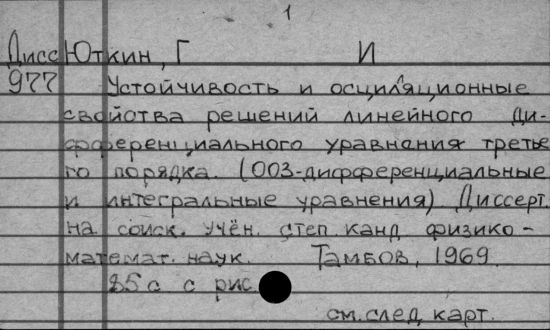 1
Дисс Юткин, Г И
977 Устойчивость и осциляционные
свойства решений линейного ди-
фференциального уравнения третье
го порядка. (003-дифференциальные
и интегральные уравнения) Диссерт.
на соиск. учён. степ. канд. физико-
математ. наук. Тамбов, 1969.
85 с с рис.
см. след. карт.